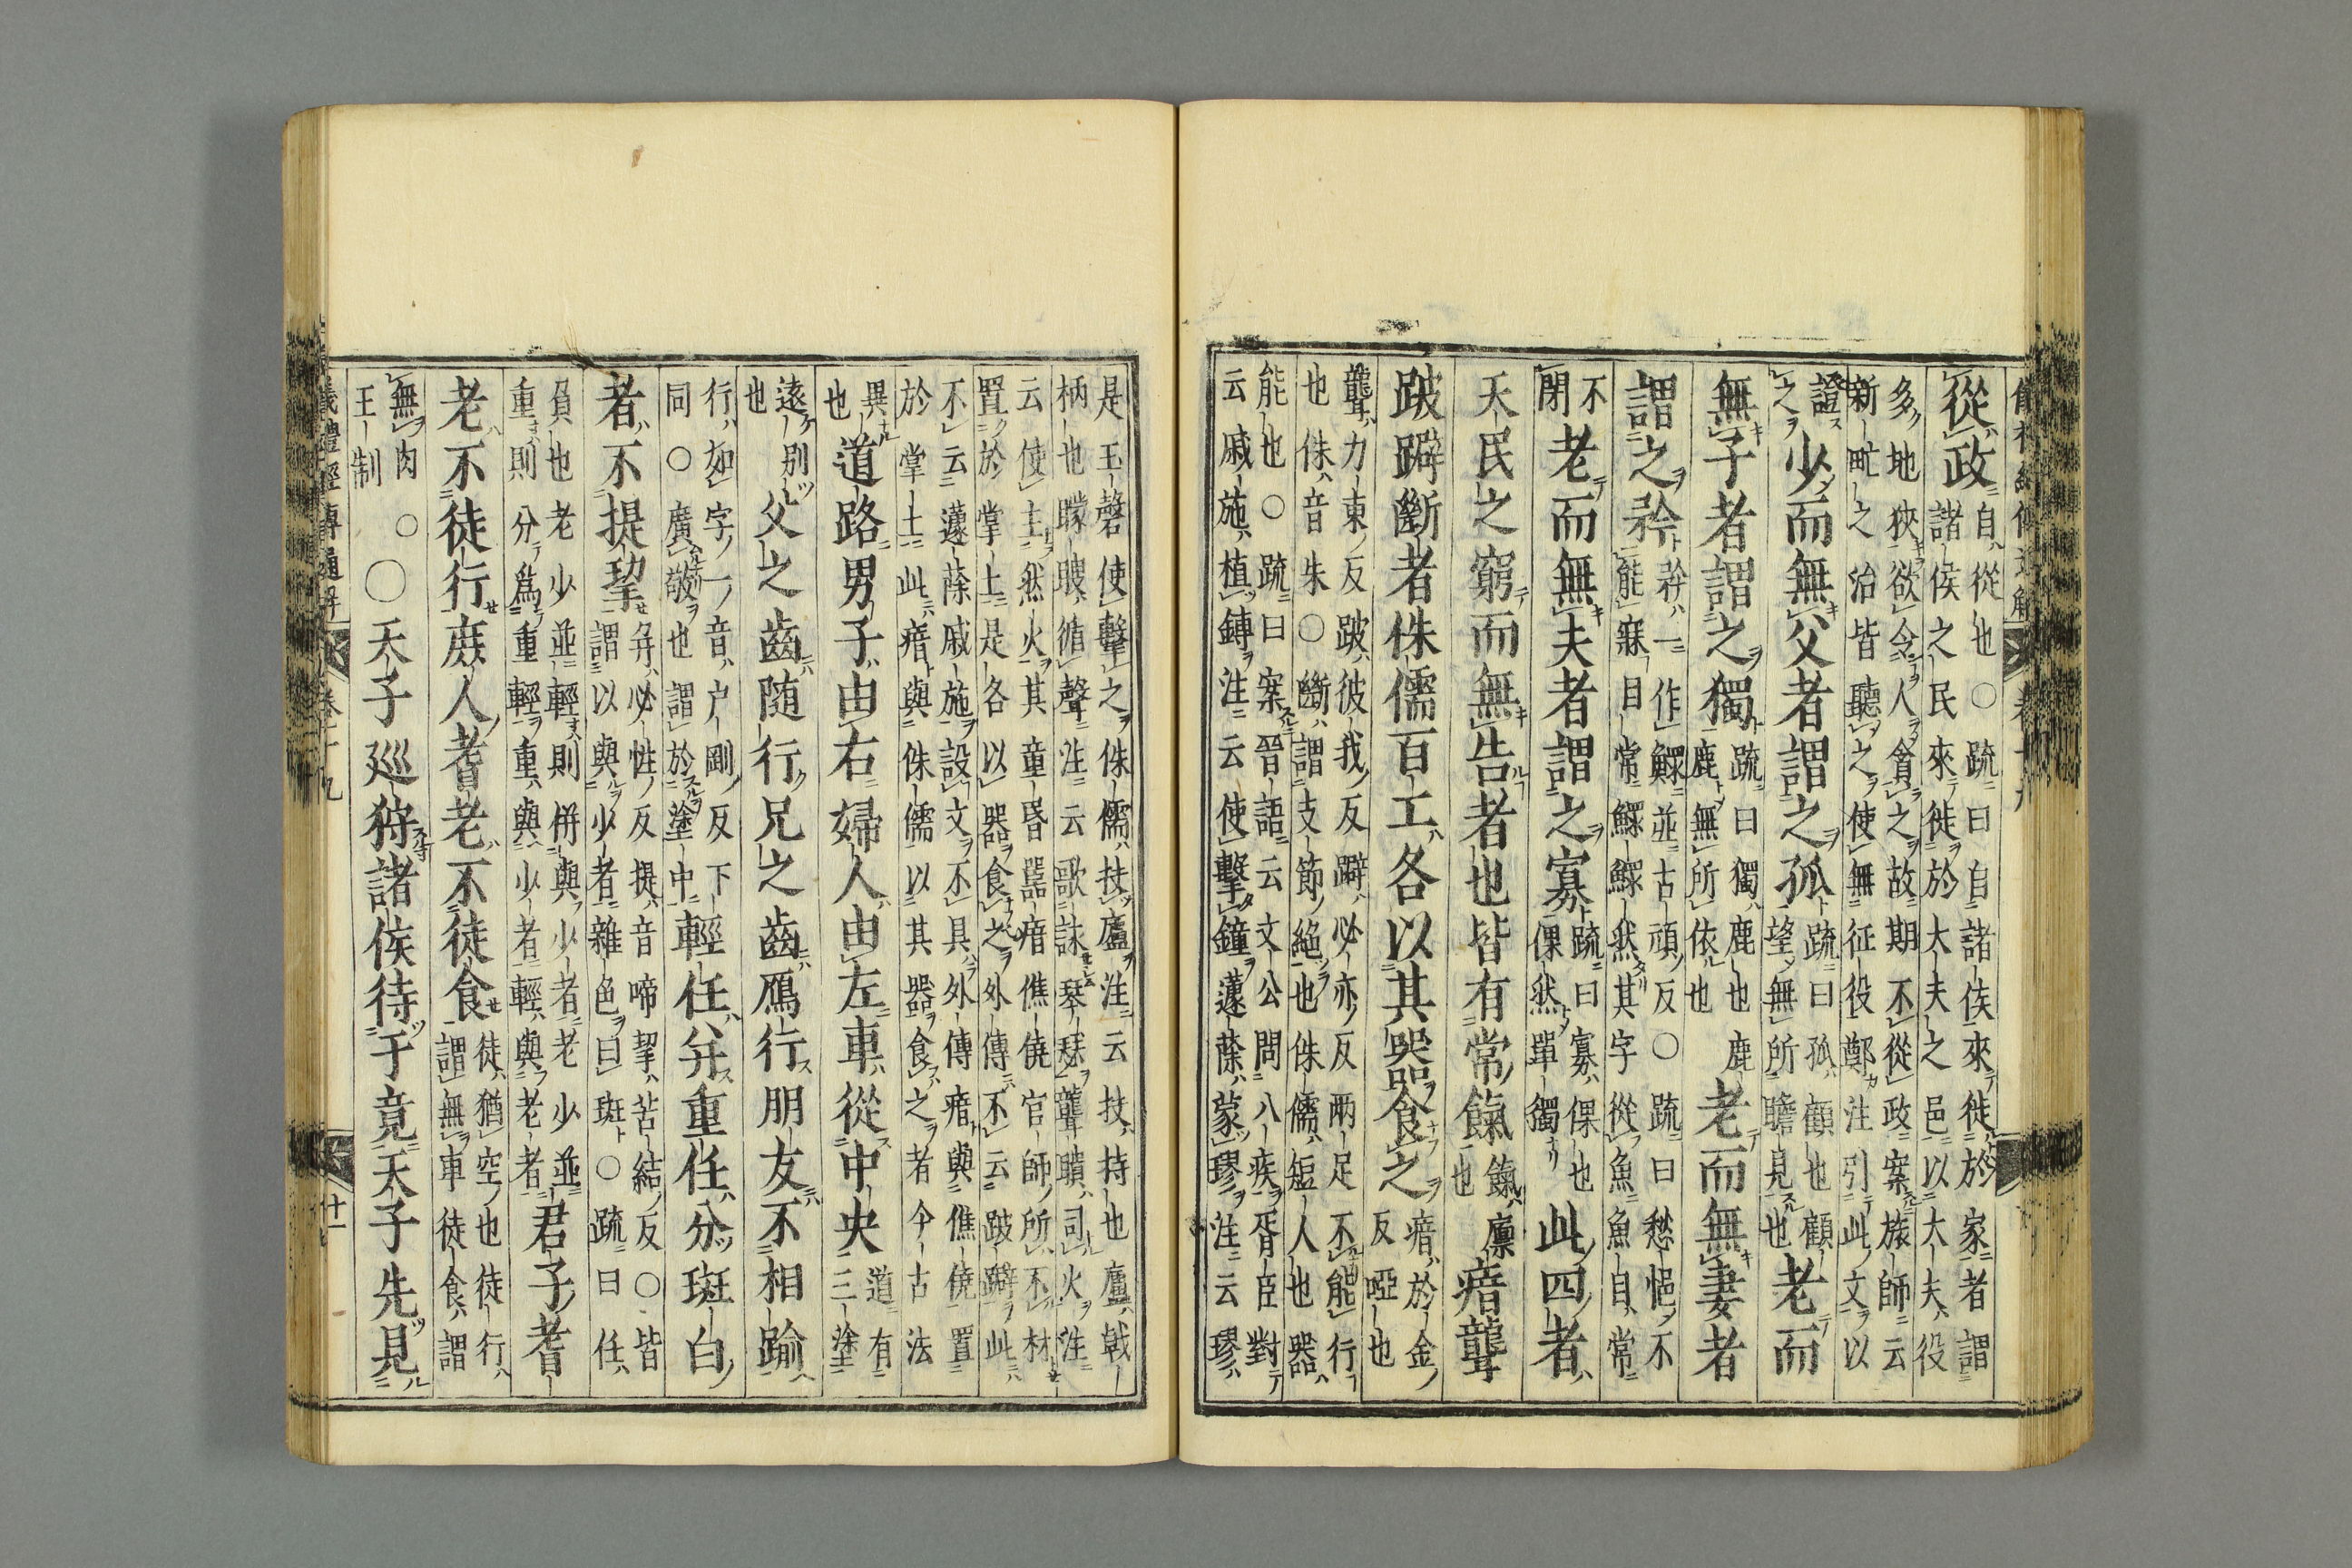 從政
自從也○疏曰自諸侯來徙於家者謂
諸侯之民來徙於大夫之邑以大夫役
多地狹欲令人貪之故期不從政案旅師云
新甿之治皆聽之使無征役鄭注引此文以
證
之
少而無父者謂之孤
疏曰孤顧也顧
望無所瞻見也
老而
無子者謂之獨
疏曰獨鹿也鹿
鹿無所依也
老而無妻者
謂之矜
矜一作鰥並古頑反○疏曰愁悒不
能寐目常鰥鰥然其字從魚魚目常
不
閉
老而無夫者謂之寡
疏曰寡倮也
倮然單獨
此四者
天民之窮而無告者也皆有常餼
餼廪
也
瘖聾
跛躃斷者侏儒百工各以其器食之
瘖於金
反啞也
聾力東反跛彼我反躃必亦反兩足不能行
也侏音朱○斷謂支節絶也侏儒短人也器
能也○疏曰案晉語云文公問八疾胥臣對
云戚施植鎛注云使擊鐘蘧蒢蒙璆注云璆
是玉磬使擊之侏儒扶廬注云扶持也廬戟
柄也矇瞍循聲注云歌詠琴瑟聾聵司火注
云使主然火其童昏嚚瘖僬僥官師所不材
置於掌土是各以器食之外傳不云跛躃此
不云蘧蒢戚施設文不具外傳瘖與僬僥置
於掌土此瘖與侏儒以其器食之者今古法
異
也
道路男子由右婦人由左車從中央
道有
三塗
遠別
也
父之齒随行兄之齒鴈行朋友不相踰
行如字一音户剛反下
同○廣敬也謂於塗中
輕任幷重任分斑白
者不提挈
幷必性反提音啼挈苦結反○皆
謂以與少者雜色曰斑○疏曰任
負也老少並輕則併與少者老少並
重則分爲重輕重與少者輕與老者
君子耆
老不徒行庶人耆老不徒食
徒猶空也徒行
謂無車徒食謂
無肉
王制
○
○天子廵狩諸侯待于竟天子先見
儀禮經傳通解 卷十九 十一